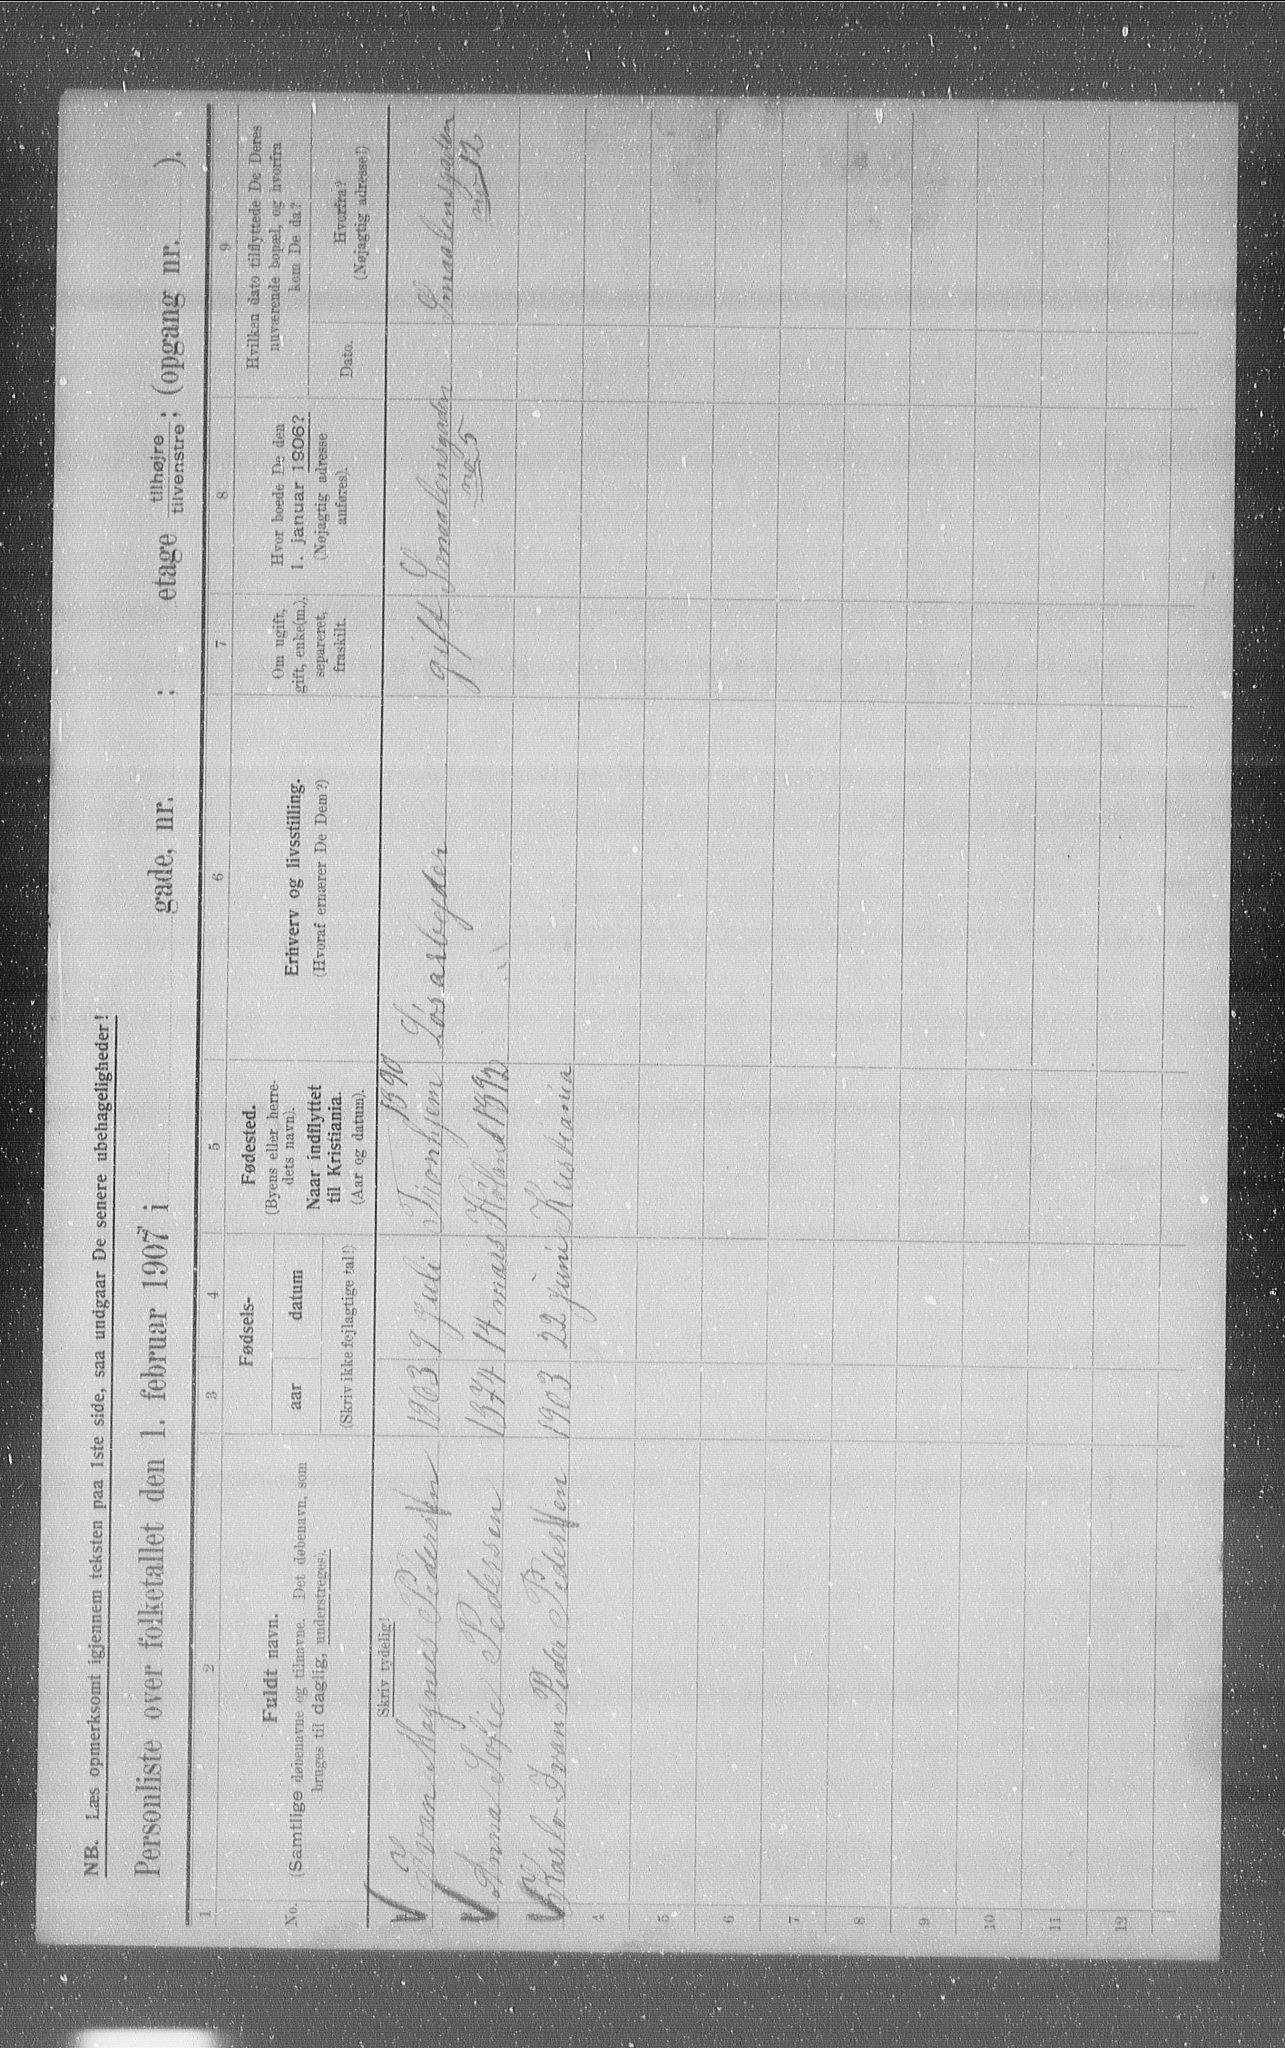 NB. Læs opmerksomt igjennem teksten paa 1ste side, saa undgaar De senere ubehageligheder!
Personliste over folketallet den 1. februar 1907 i gade, nr. ; etage tilhøjre tilvenstre; (opgang nr. ).
1 2 3 4 5 6 7 8 9
No.
Fuldt navn.
(Samtlige døbenavne og tilnavne. Det døbenavn, som
bruges til daglig, understreges).
Skriv tydelig!
Fødsels-
aar datum
(Skriv ikke fejlagtige tal!)
Fødested.
(Byens eller herre-
dets navn).
Naar indflyttet
til Kristiania.
(Aar og datum).
Erhverv og livsstilling.
(Hvoraf ernærer De Dem?)
Om ugift,
gift, enke(m.),
separeret,
fraskilt.
Hvor boede De den
1. januar 1906?
(Nøjagtig adresse
anføres).
Hvilken dato tilflyttede De Deres
nuværende bopæl, og hvorfra
kom De da?
Dato.
Hvorfra?
(Nøjagtig adresse!)
Ivan Magnus Pedersen 9 juli Tronhjem 1890 Løsarbejder gift Smaalensgaden no 5 Smaalensgaden no 12
Anna Sofie Pederssen 1874 14 mars Høland 1892
Karlo Ivan Peder Pedersen 1903 22 juni Kristiania
4
5
6
7
8
9
10
11
12